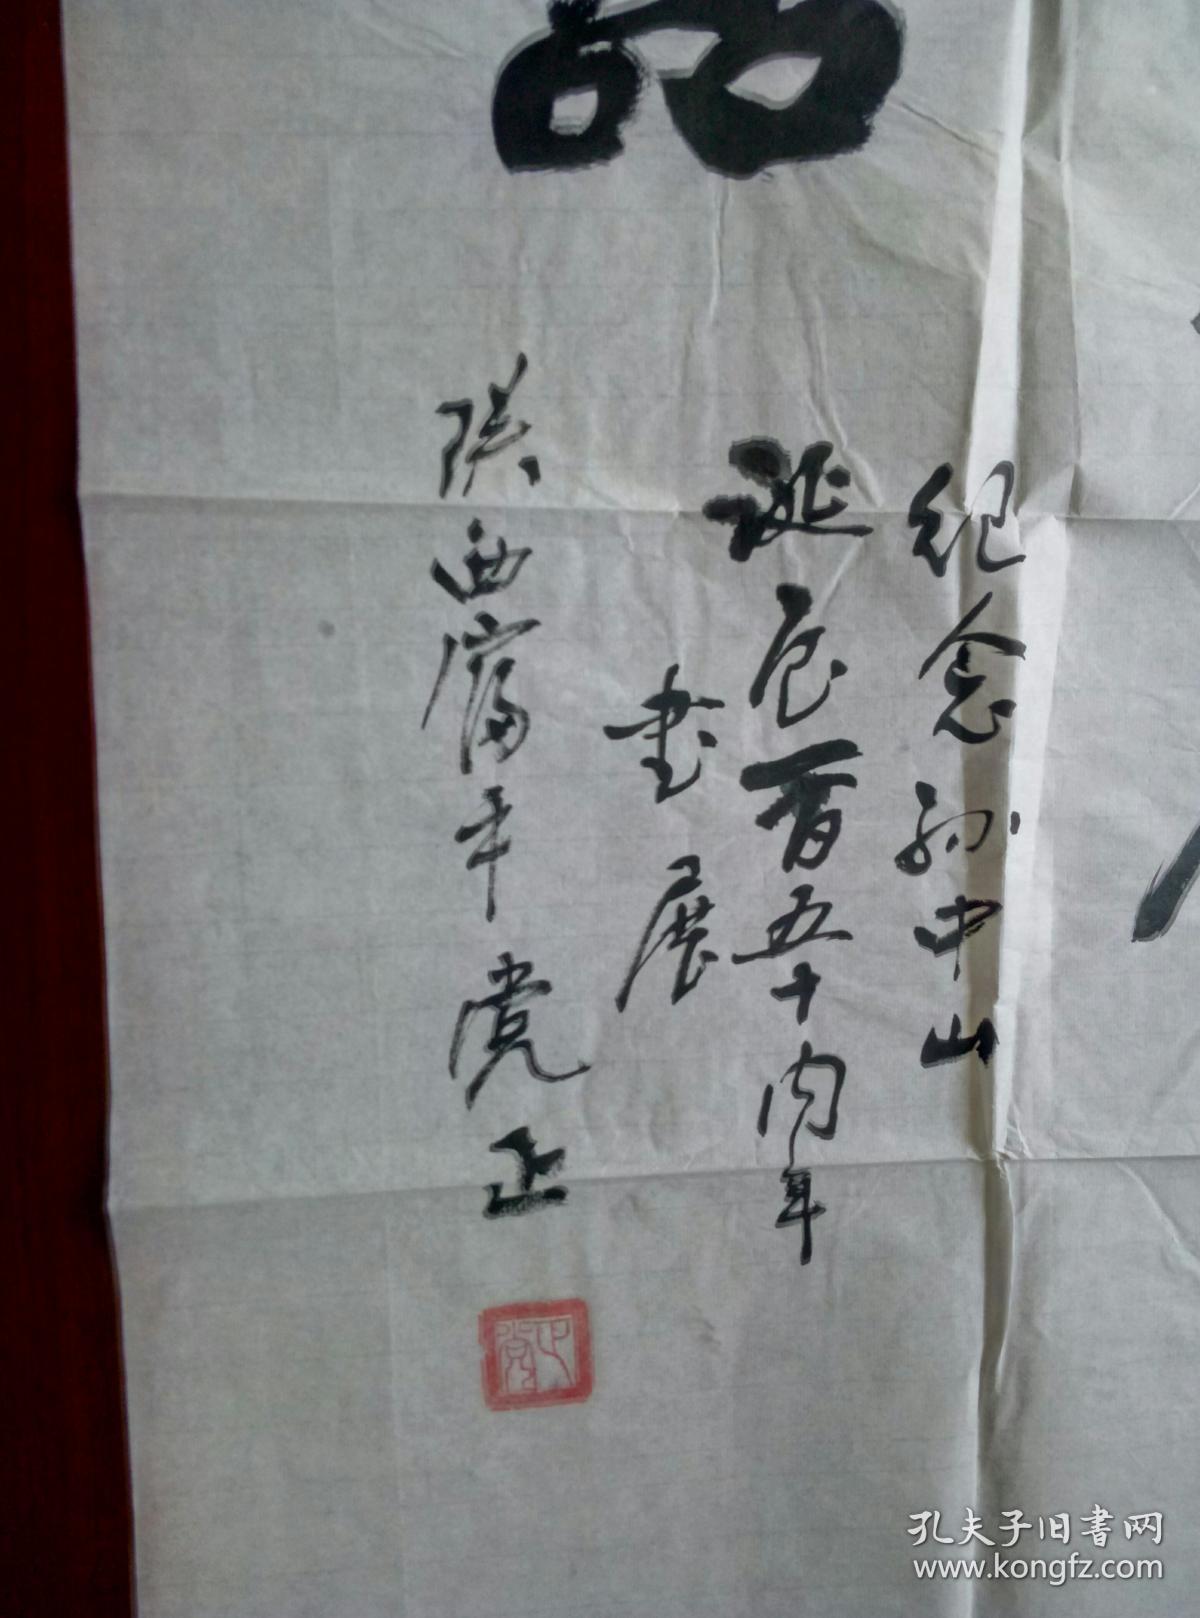 品
纪念孙中山
诞辰百五十周年
书展
陕西富平党正
孔夫子旧书网
www.kongfz.com